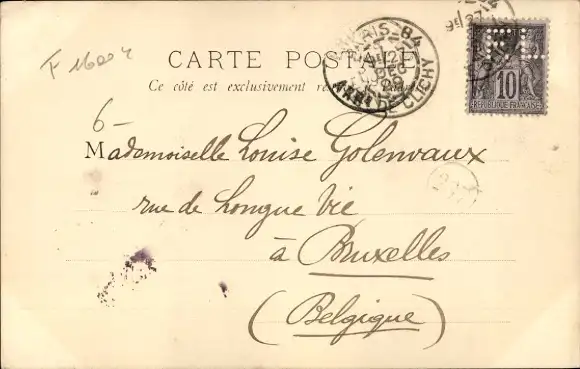 F 1600 4
CARTE POSTALE
Ce côté est exclusivement
PARIS-84
DE CLICHY
10
REPUBLIQUE FRANÇAISE
6-
Mademoiselle Louise Golenvaux
rue de Longue Vie
à Bruxelles
(Belgique)